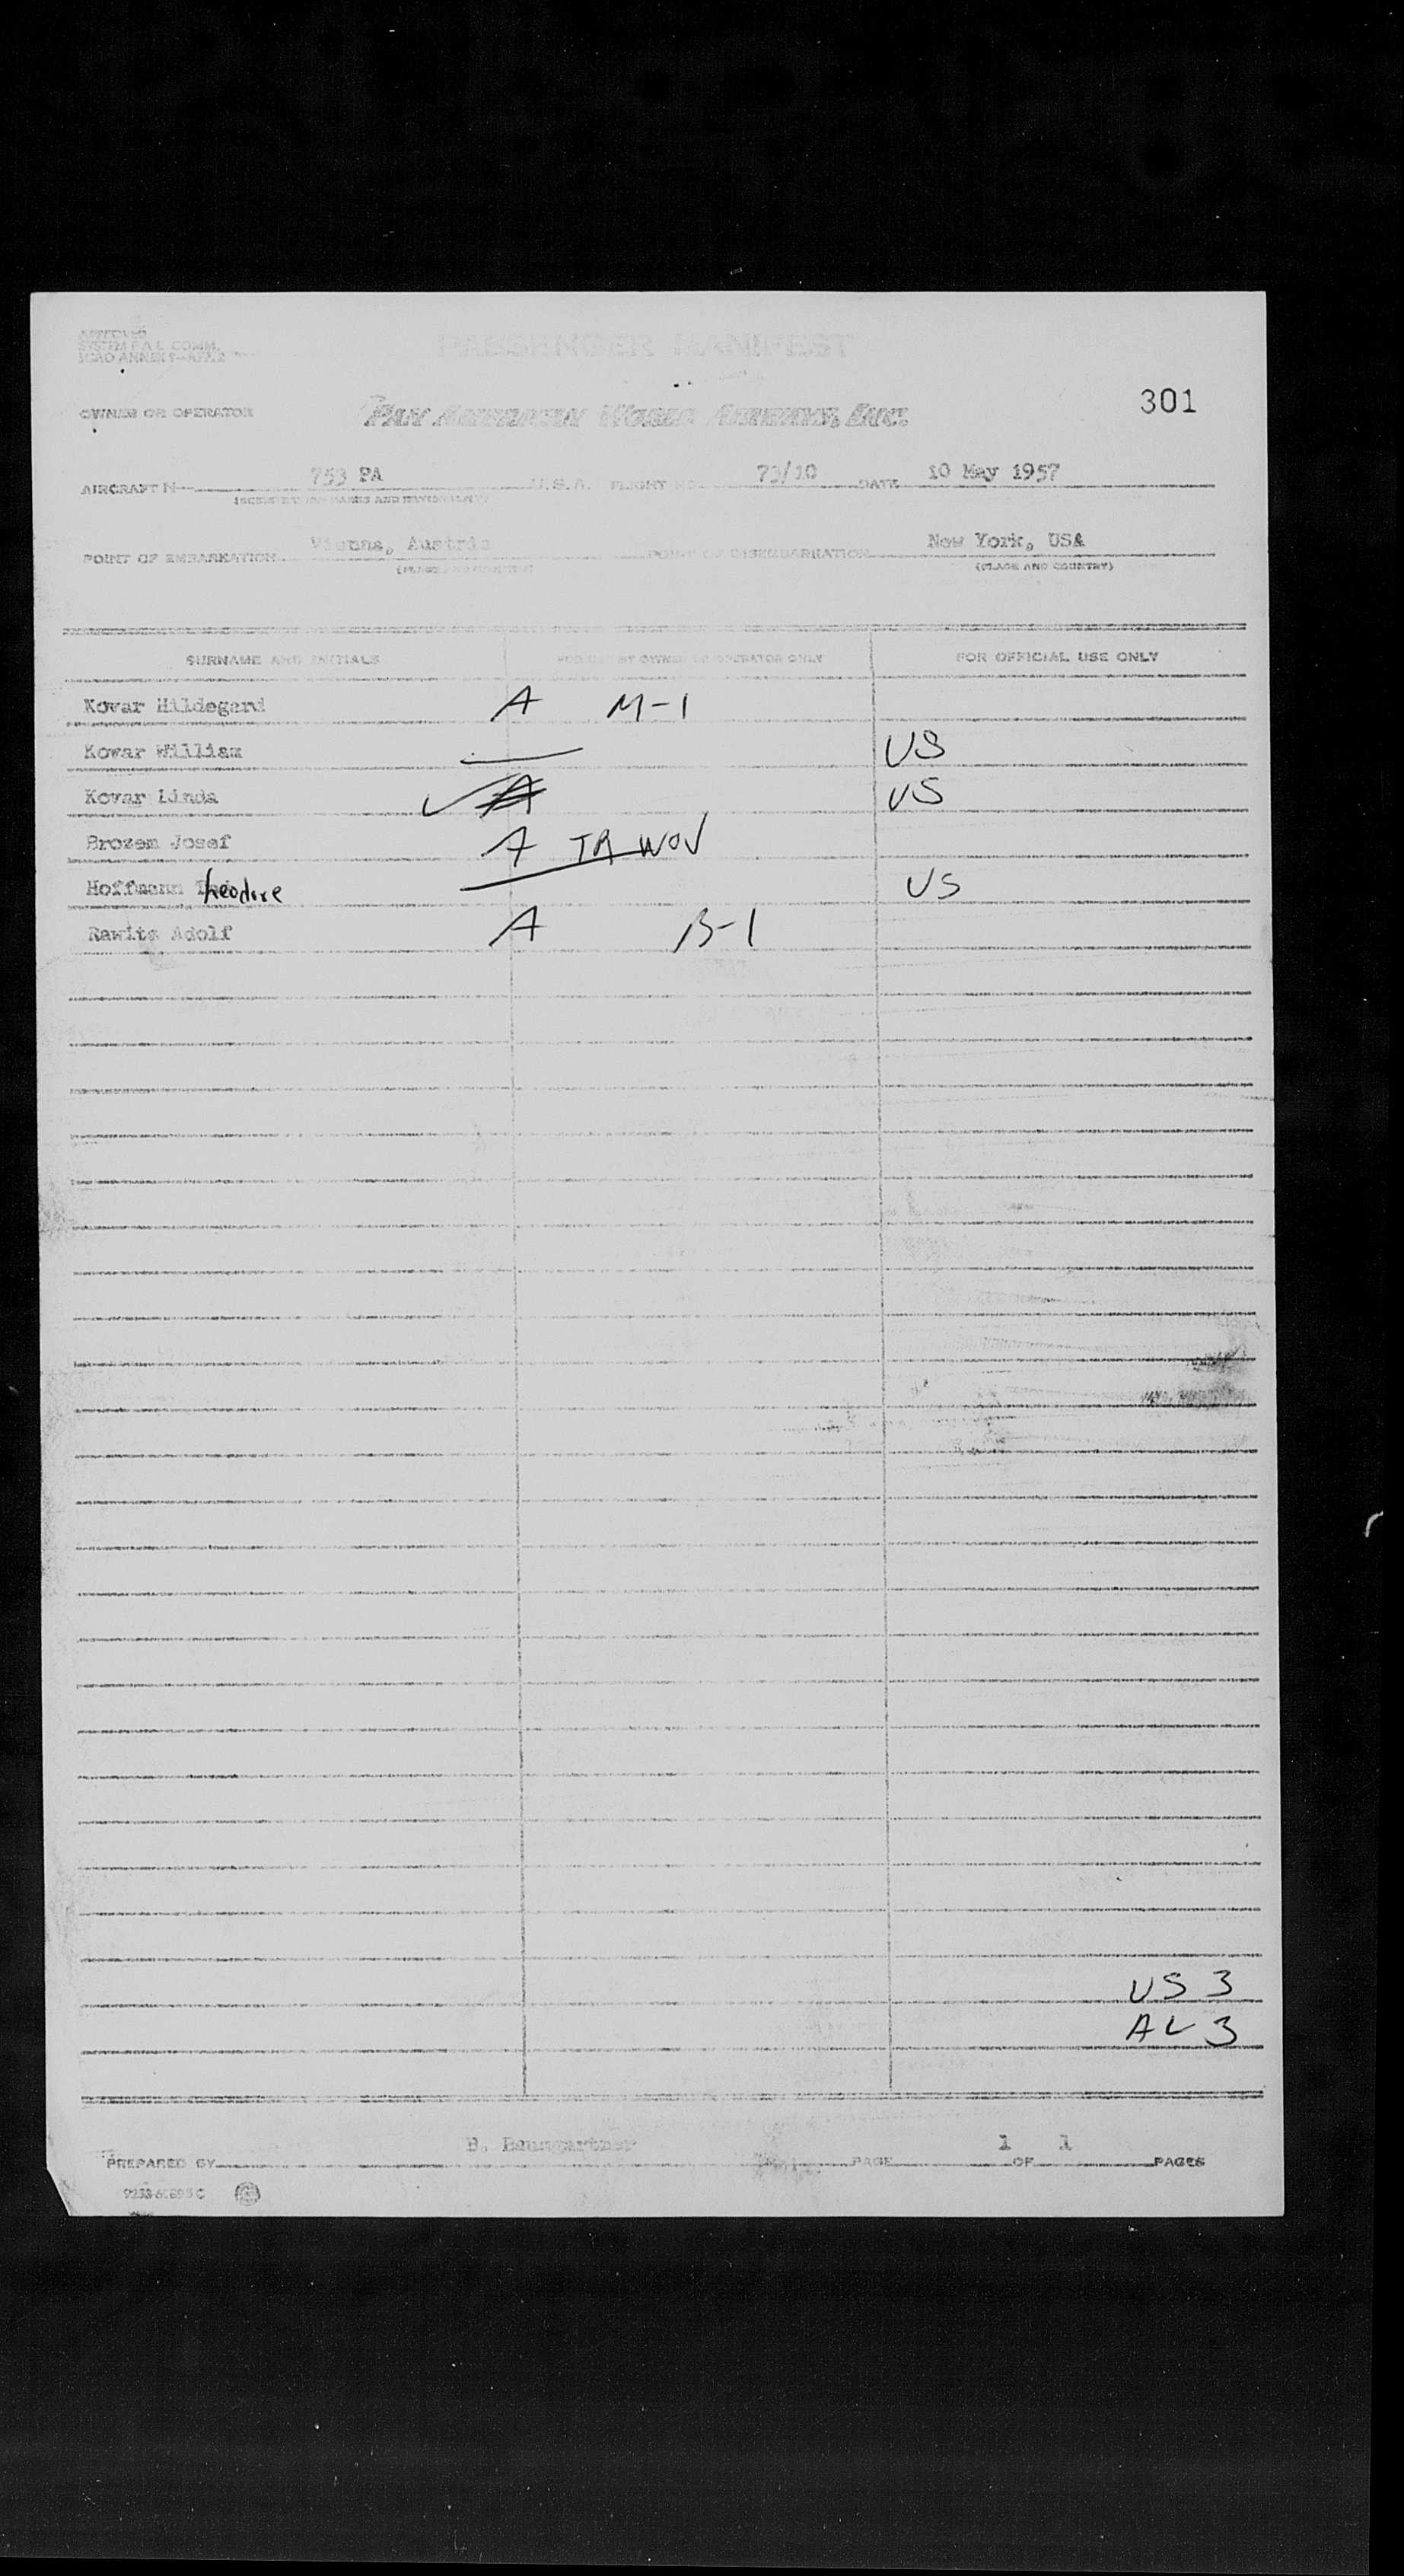 SYSTEM F A L COMM.
ICAO ANNEX 9—APP. 2
PASSENGER MANIFEST
301
OWNER OR OPERATOR PAN AMERICAN WORLD AIRWAYS, INC.
AIRCRAFT N— 753 PA U.S.A. FLIGHT NO. 73/10 DATE 10 May 1957
POINT OF EMBARKATION Vienna, Austria POINT OF DISEMBARKATION New York, USA
(PLACE AND COUNTRY) (PLACE AND COUNTRY)
SURNAME AND INITIALS FOR USE BY OWNER OR OPERATOR ONLY FOR OFFICIAL USE ONLY
Kovar Hildegard A M-1
Kovar William US
Kovar Linda A US
Brozem Josef A TR WOV
Hoffmann Theodore US
Rawits Adolf A B-1
US 3
AL 3
PREPARED BY B. Baumgartner PAGE 1 OF 1 PAGES